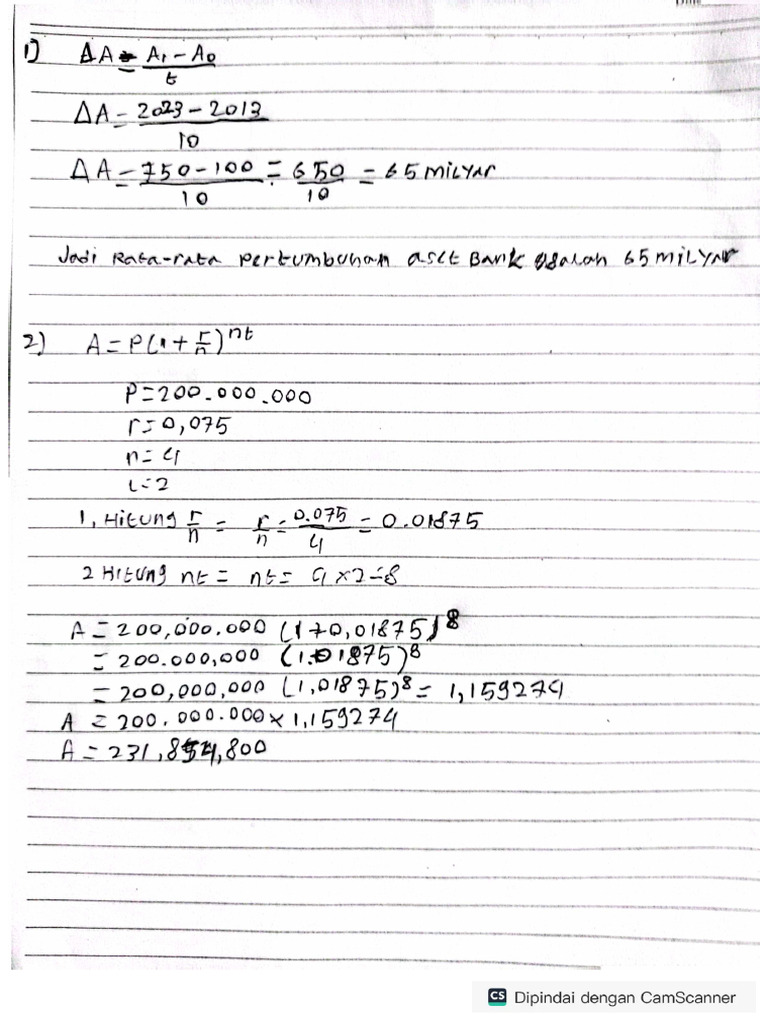 1) ΔA = A₁ - A₀ / t
ΔA = 2023 - 2013 / 10
ΔA = 750 - 100 / 10 = 650 / 10 = 65 milyar
Jadi Rata-rata pertumbuhan aset Bank adalah 65 milyar
2) A = P(1 + r/n)^nt
P = 200.000.000
r = 0,075
n = 4
t = 2
1, Hitung r/n = r/n = 0.075/4 = 0.01875
2 Hitung nt = nt = 4 x 2 = 8
A = 200,000.000 (1+0,01875)^8
= 200.000,000 (1.01875)^8
= 200,000,000 (1,01875)^8 = 1,159274
A = 200.000.000 x 1,159274
A = 231,854,800
CS Dipindai dengan CamScanner